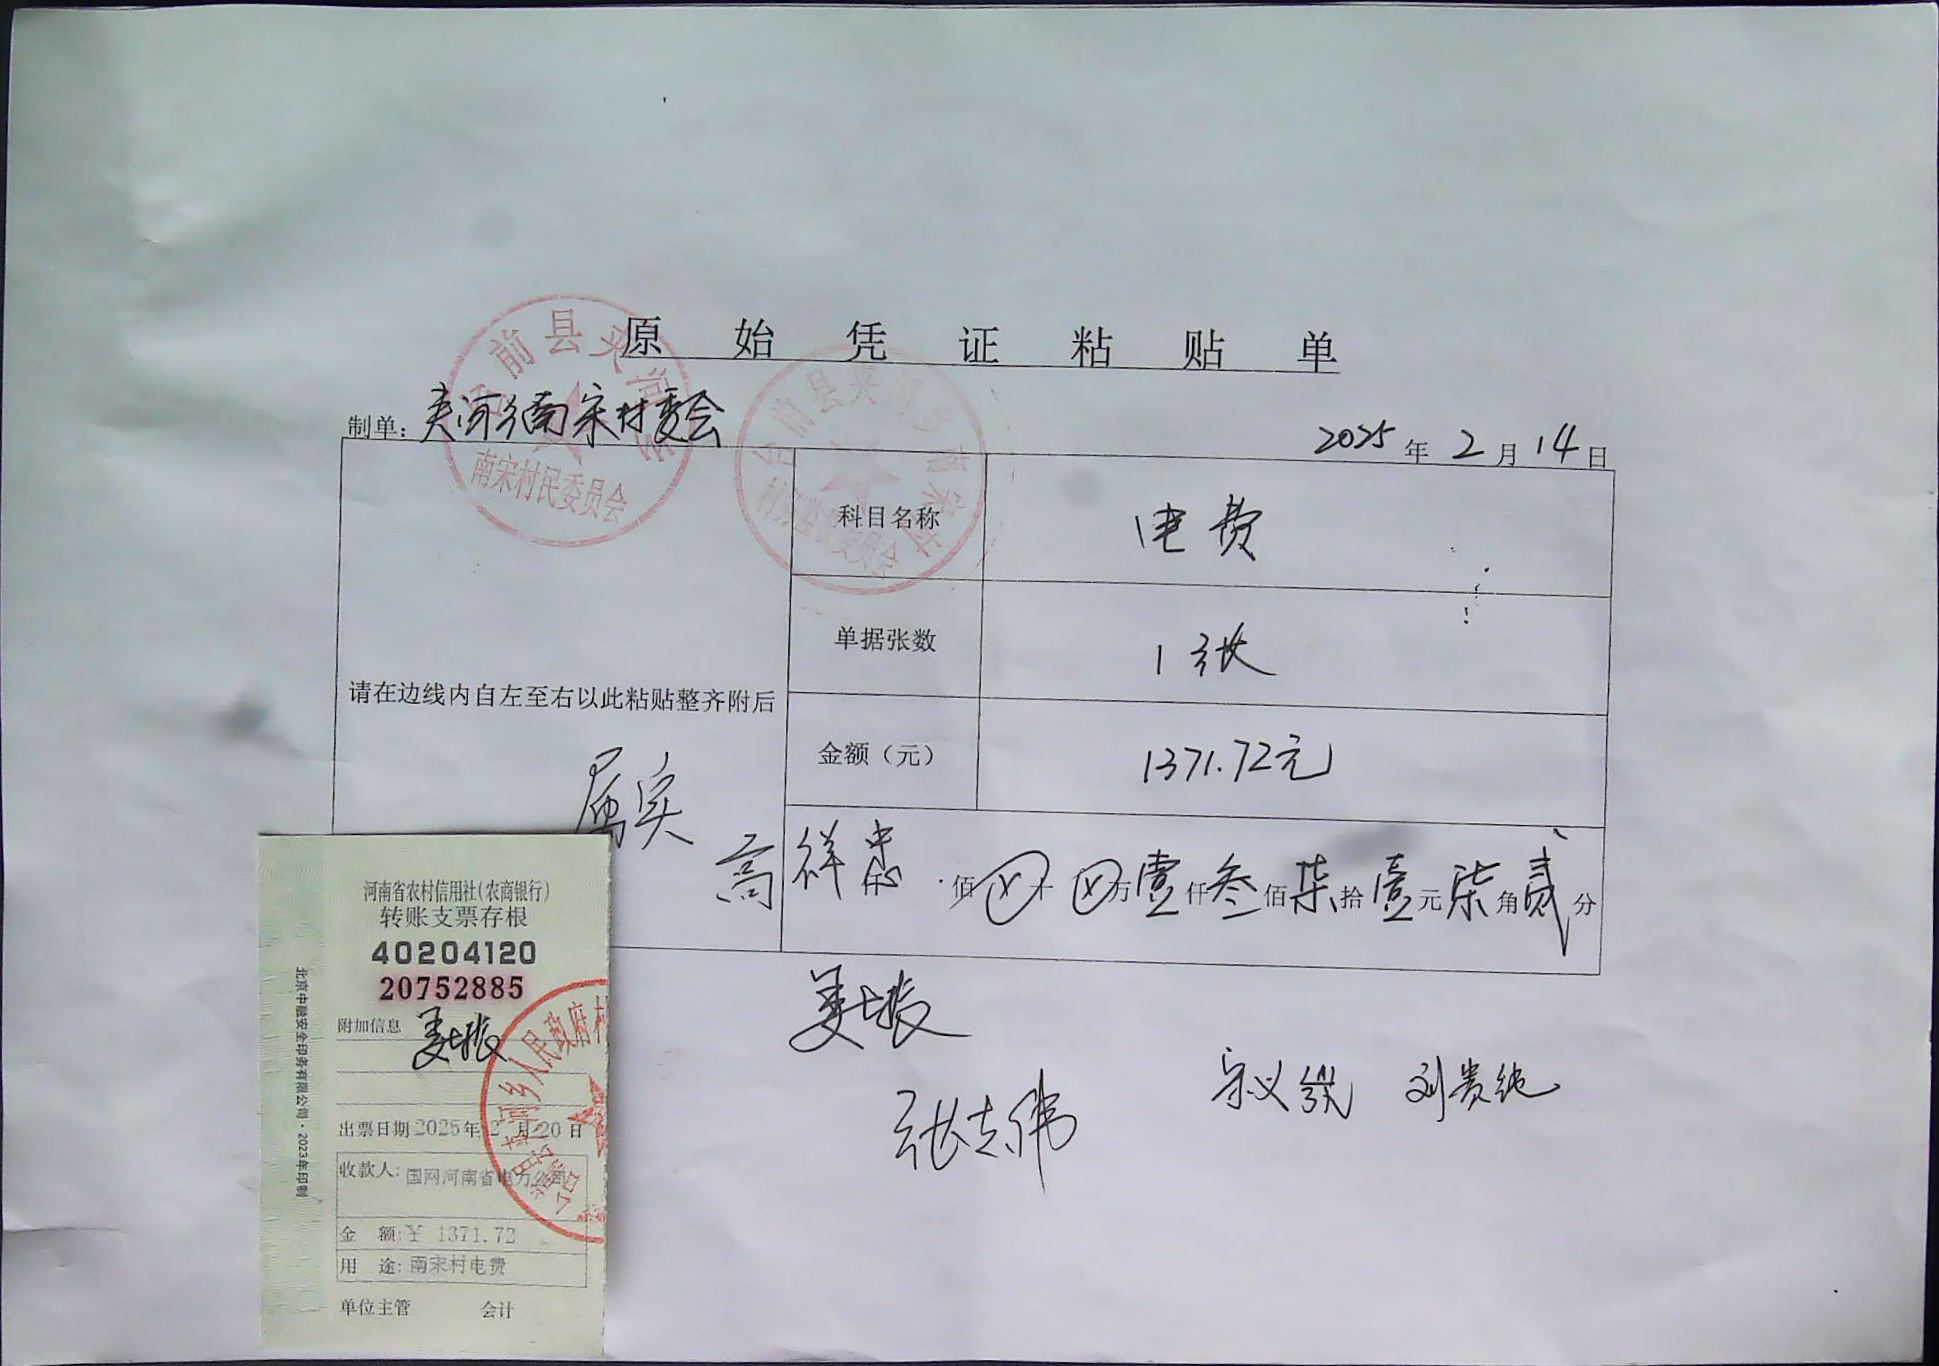 原始凭证粘贴单
制单：夹河乡南宋村委会
2025年2月14日
台前县夹河乡
南宋村民委员会
台前县夹河乡南宋村
村务监督委员会
科目名称 电费
单据张数 1张
请在边线内自左至右以此粘贴整齐附后
金额（元） 1371.72元
属实
高祥忠
佰 万壹仟叁佰柒拾壹元柒角贰分
河南省农村信用社(农商银行)
转账支票存根
40204120
20752885
附加信息
出票日期2025年2月20日
收款人:国网河南省电力公司
金 额:¥ 1371.72
用 途:南宋村电费
单位主管 会计
北京中融安全印务有限公司·2023年印制
河乡人民政府村
张志伟
刘贵纯